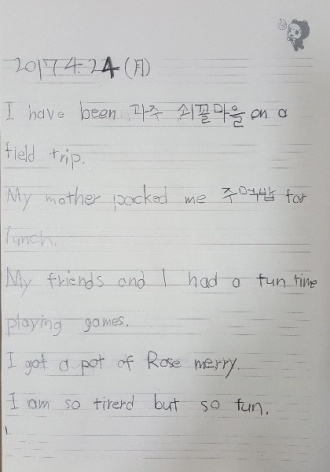 2017.4.24(月)
I have been 파주 쇠꼴마을 on a
field trip.
My mother packed me 주먹밥 for
lunch.
My friends and I had a fun time
playing games.
I got a pot of Rose merry.
I am so tirerd but so fun.